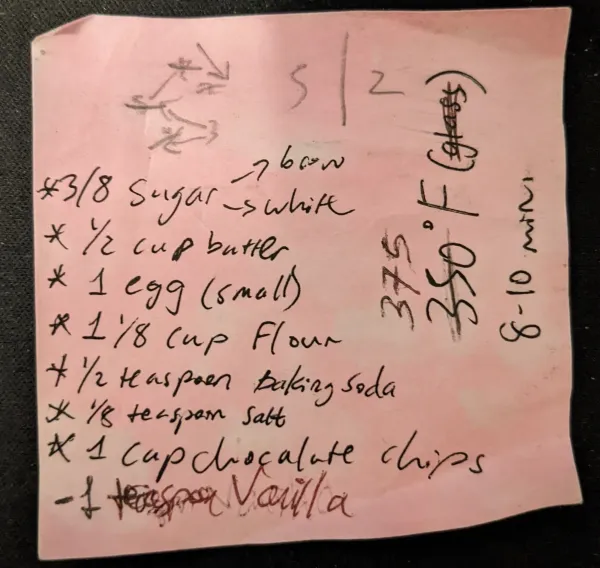 5 | 2
*3/8 Sugar → brow
→ white
* 1/2 cup butter
* 1 egg (small)
* 1 1/8 cup Flour
* 1/2 teaspoon baking soda
* 1/8 teaspoon salt
* 1 cup chocolate chips
- 1 teaspoon Vanilla
375
350°F (glass)
8-10 min.